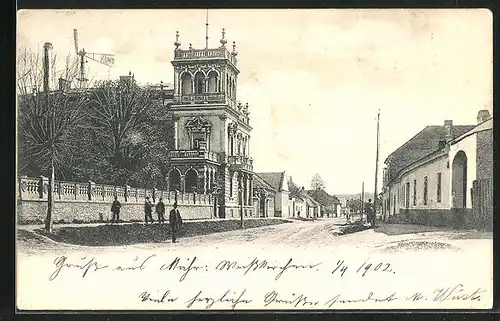 Gruß aus Mähr: Weißkirchen. 1/9 1902.
Viele herzliche Grüße sendet M. Wüst.